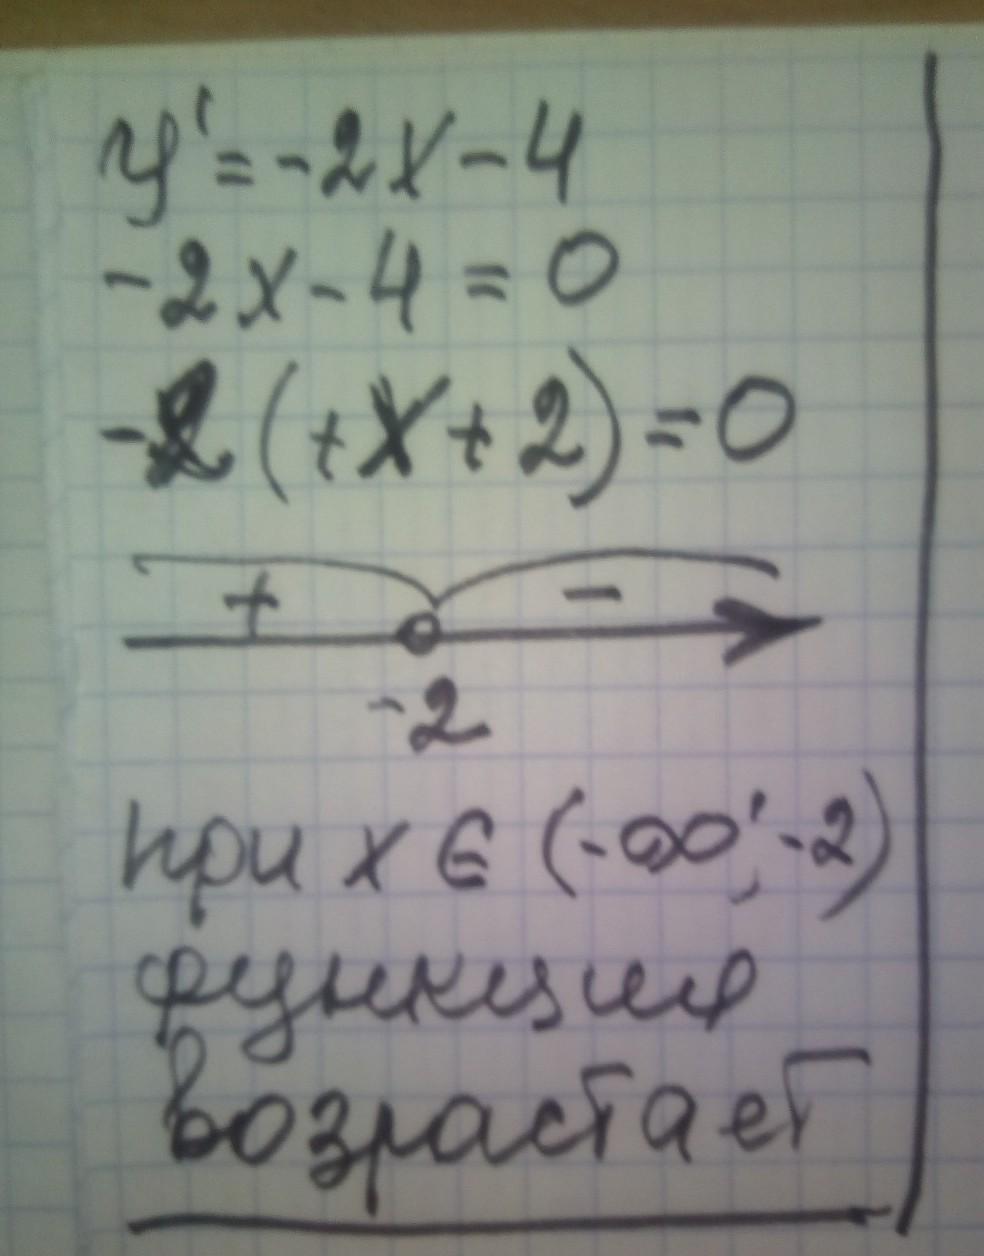 y' = -2x - 4
-2x - 4 = 0
-2 (+x + 2) = 0
+ -
-2
при x ∈ (-∞; -2)
функция
возрастает